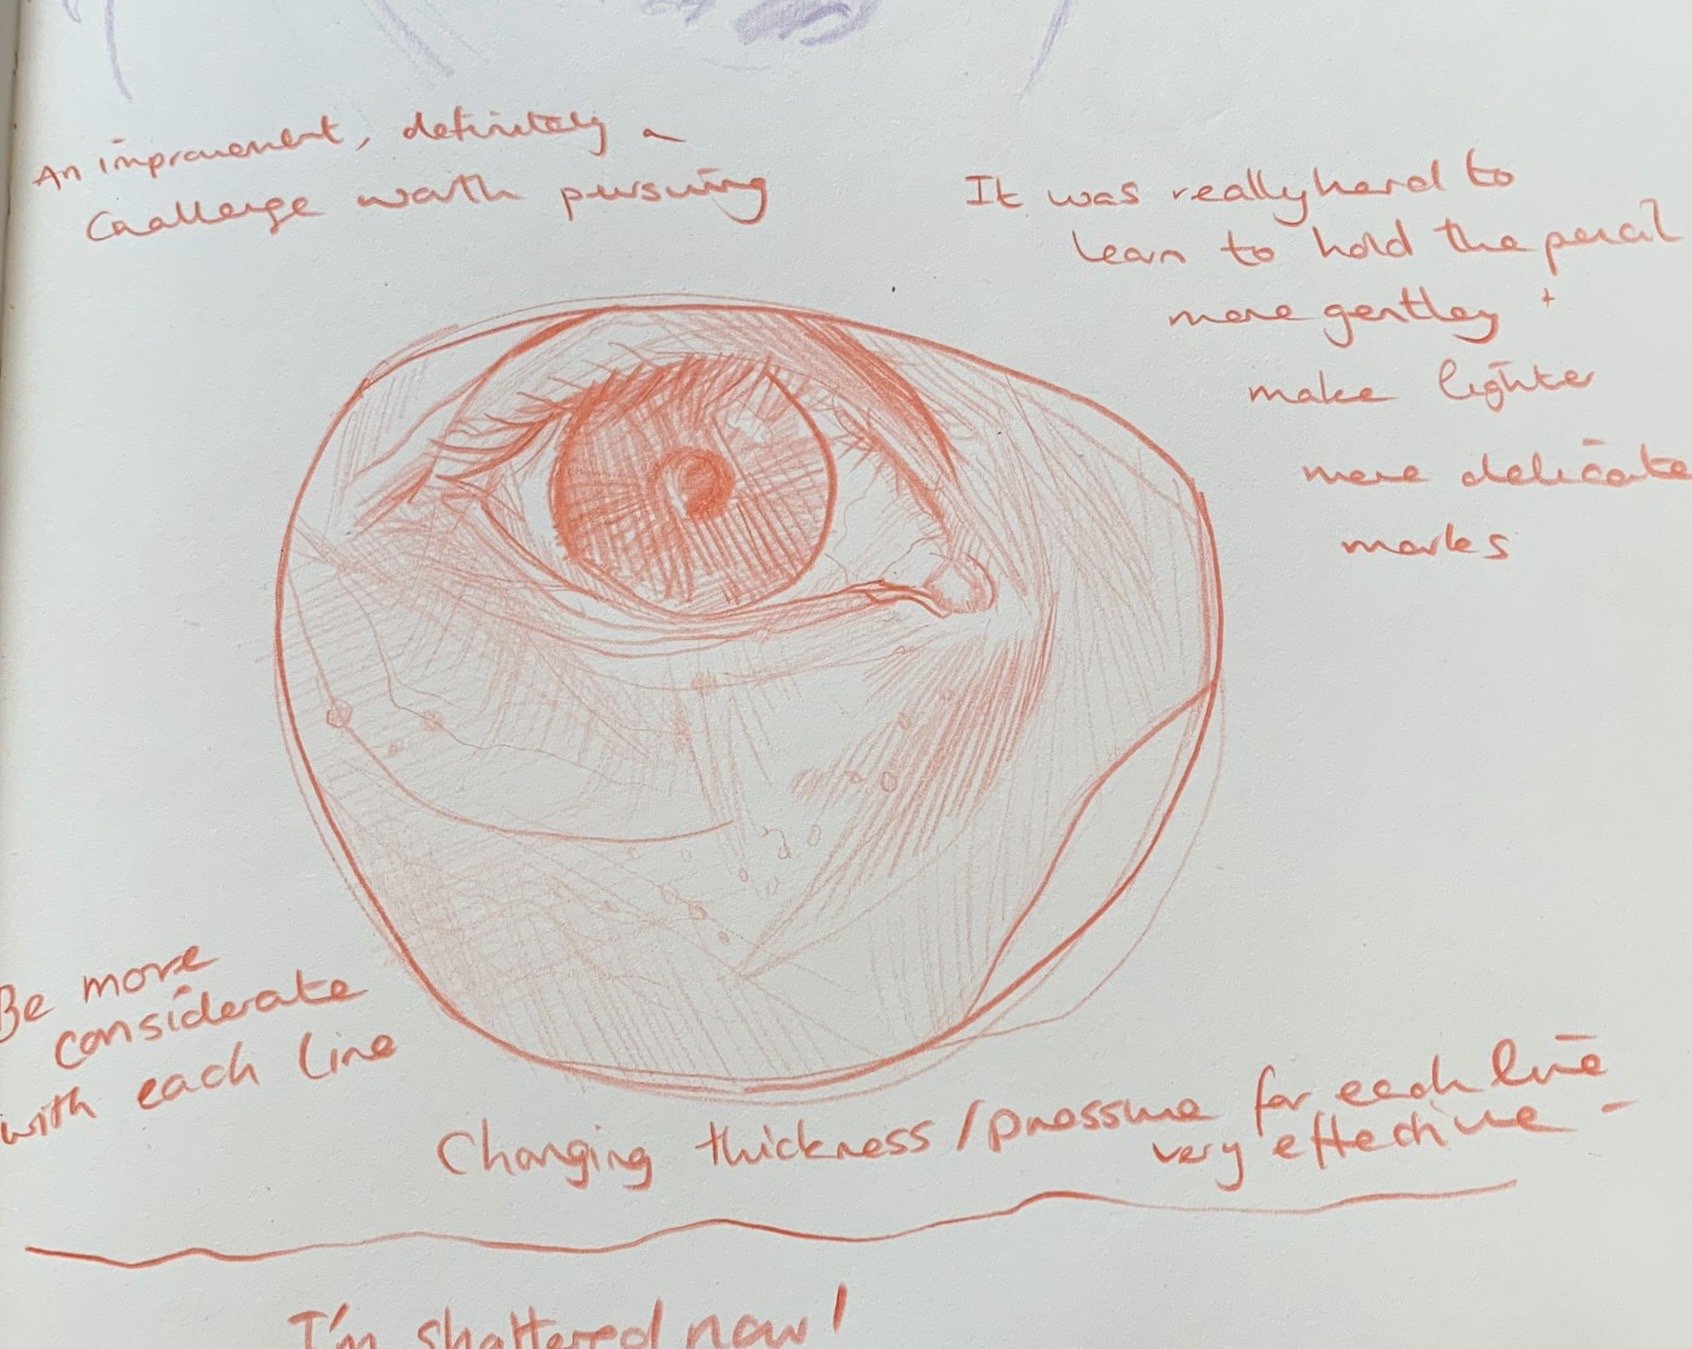 An improvement, definitely a
Challenge worth pursuing
It was really hard to
learn to hold the pencil
more gentley +
make lighter
more delicate
marks
Be more
considerate
with each line
Changing thickness/pressure for each line
very effective -
I'm shattered now!